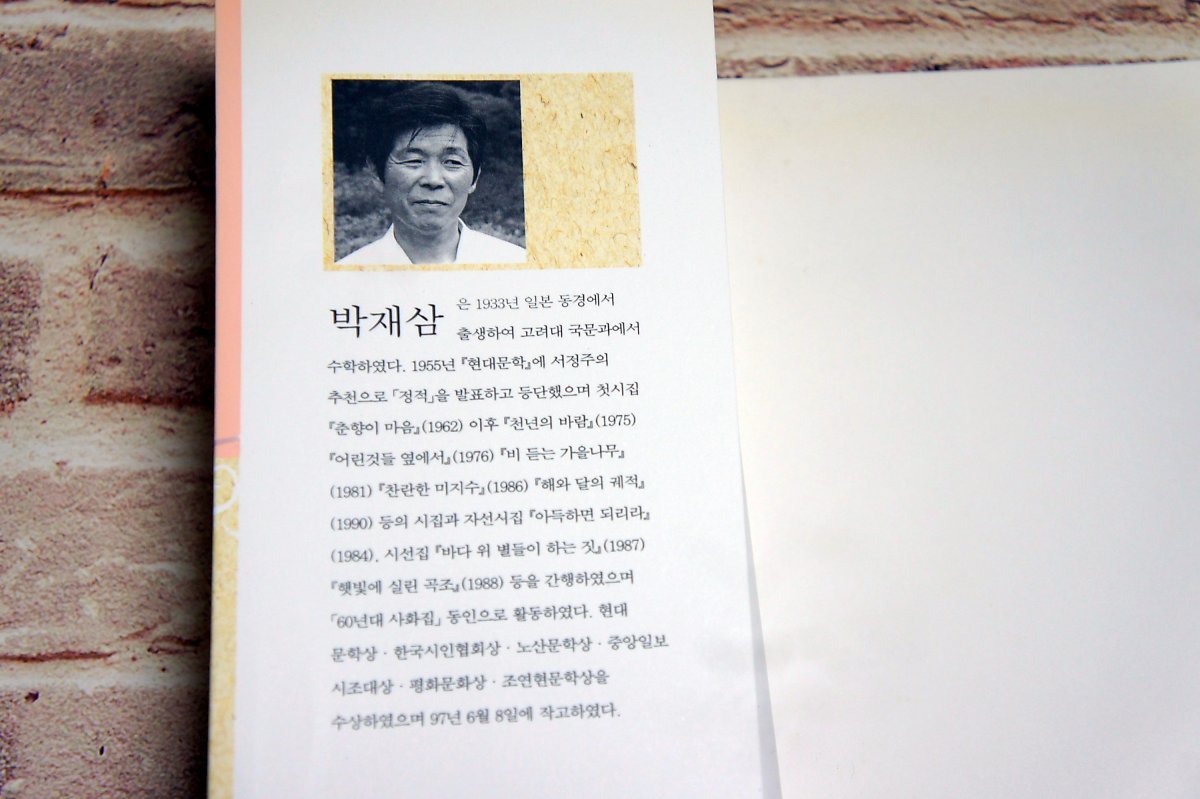 박재삼 은 1933년 일본 동경에서
출생하여 고려대 국문과에서
수학하였다. 1955년 『현대문학』에 서정주의
추천으로 「정적」을 발표하고 등단했으며 첫시집
『춘향이 마음』(1962) 이후 『천년의 바람』(1975)
『어린것들 옆에서』(1976) 『비 듣는 가을나무』
(1981) 『찬란한 미지수』(1986) 『해와 달의 궤적』
(1990) 등의 시집과 자선시집 『아득하면 되리라』
(1984). 시선집 『바다 위 별들이 하는 짓』(1987)
『햇빛에 실린 곡조』(1988) 등을 간행하였으며
「60년대 사화집」 동인으로 활동하였다. 현대
문학상 · 한국시인협회상 · 노산문학상 · 중앙일보
시조대상 · 평화문화상 · 조연현문학상을
수상하였으며 97년 6월 8일에 작고하였다.